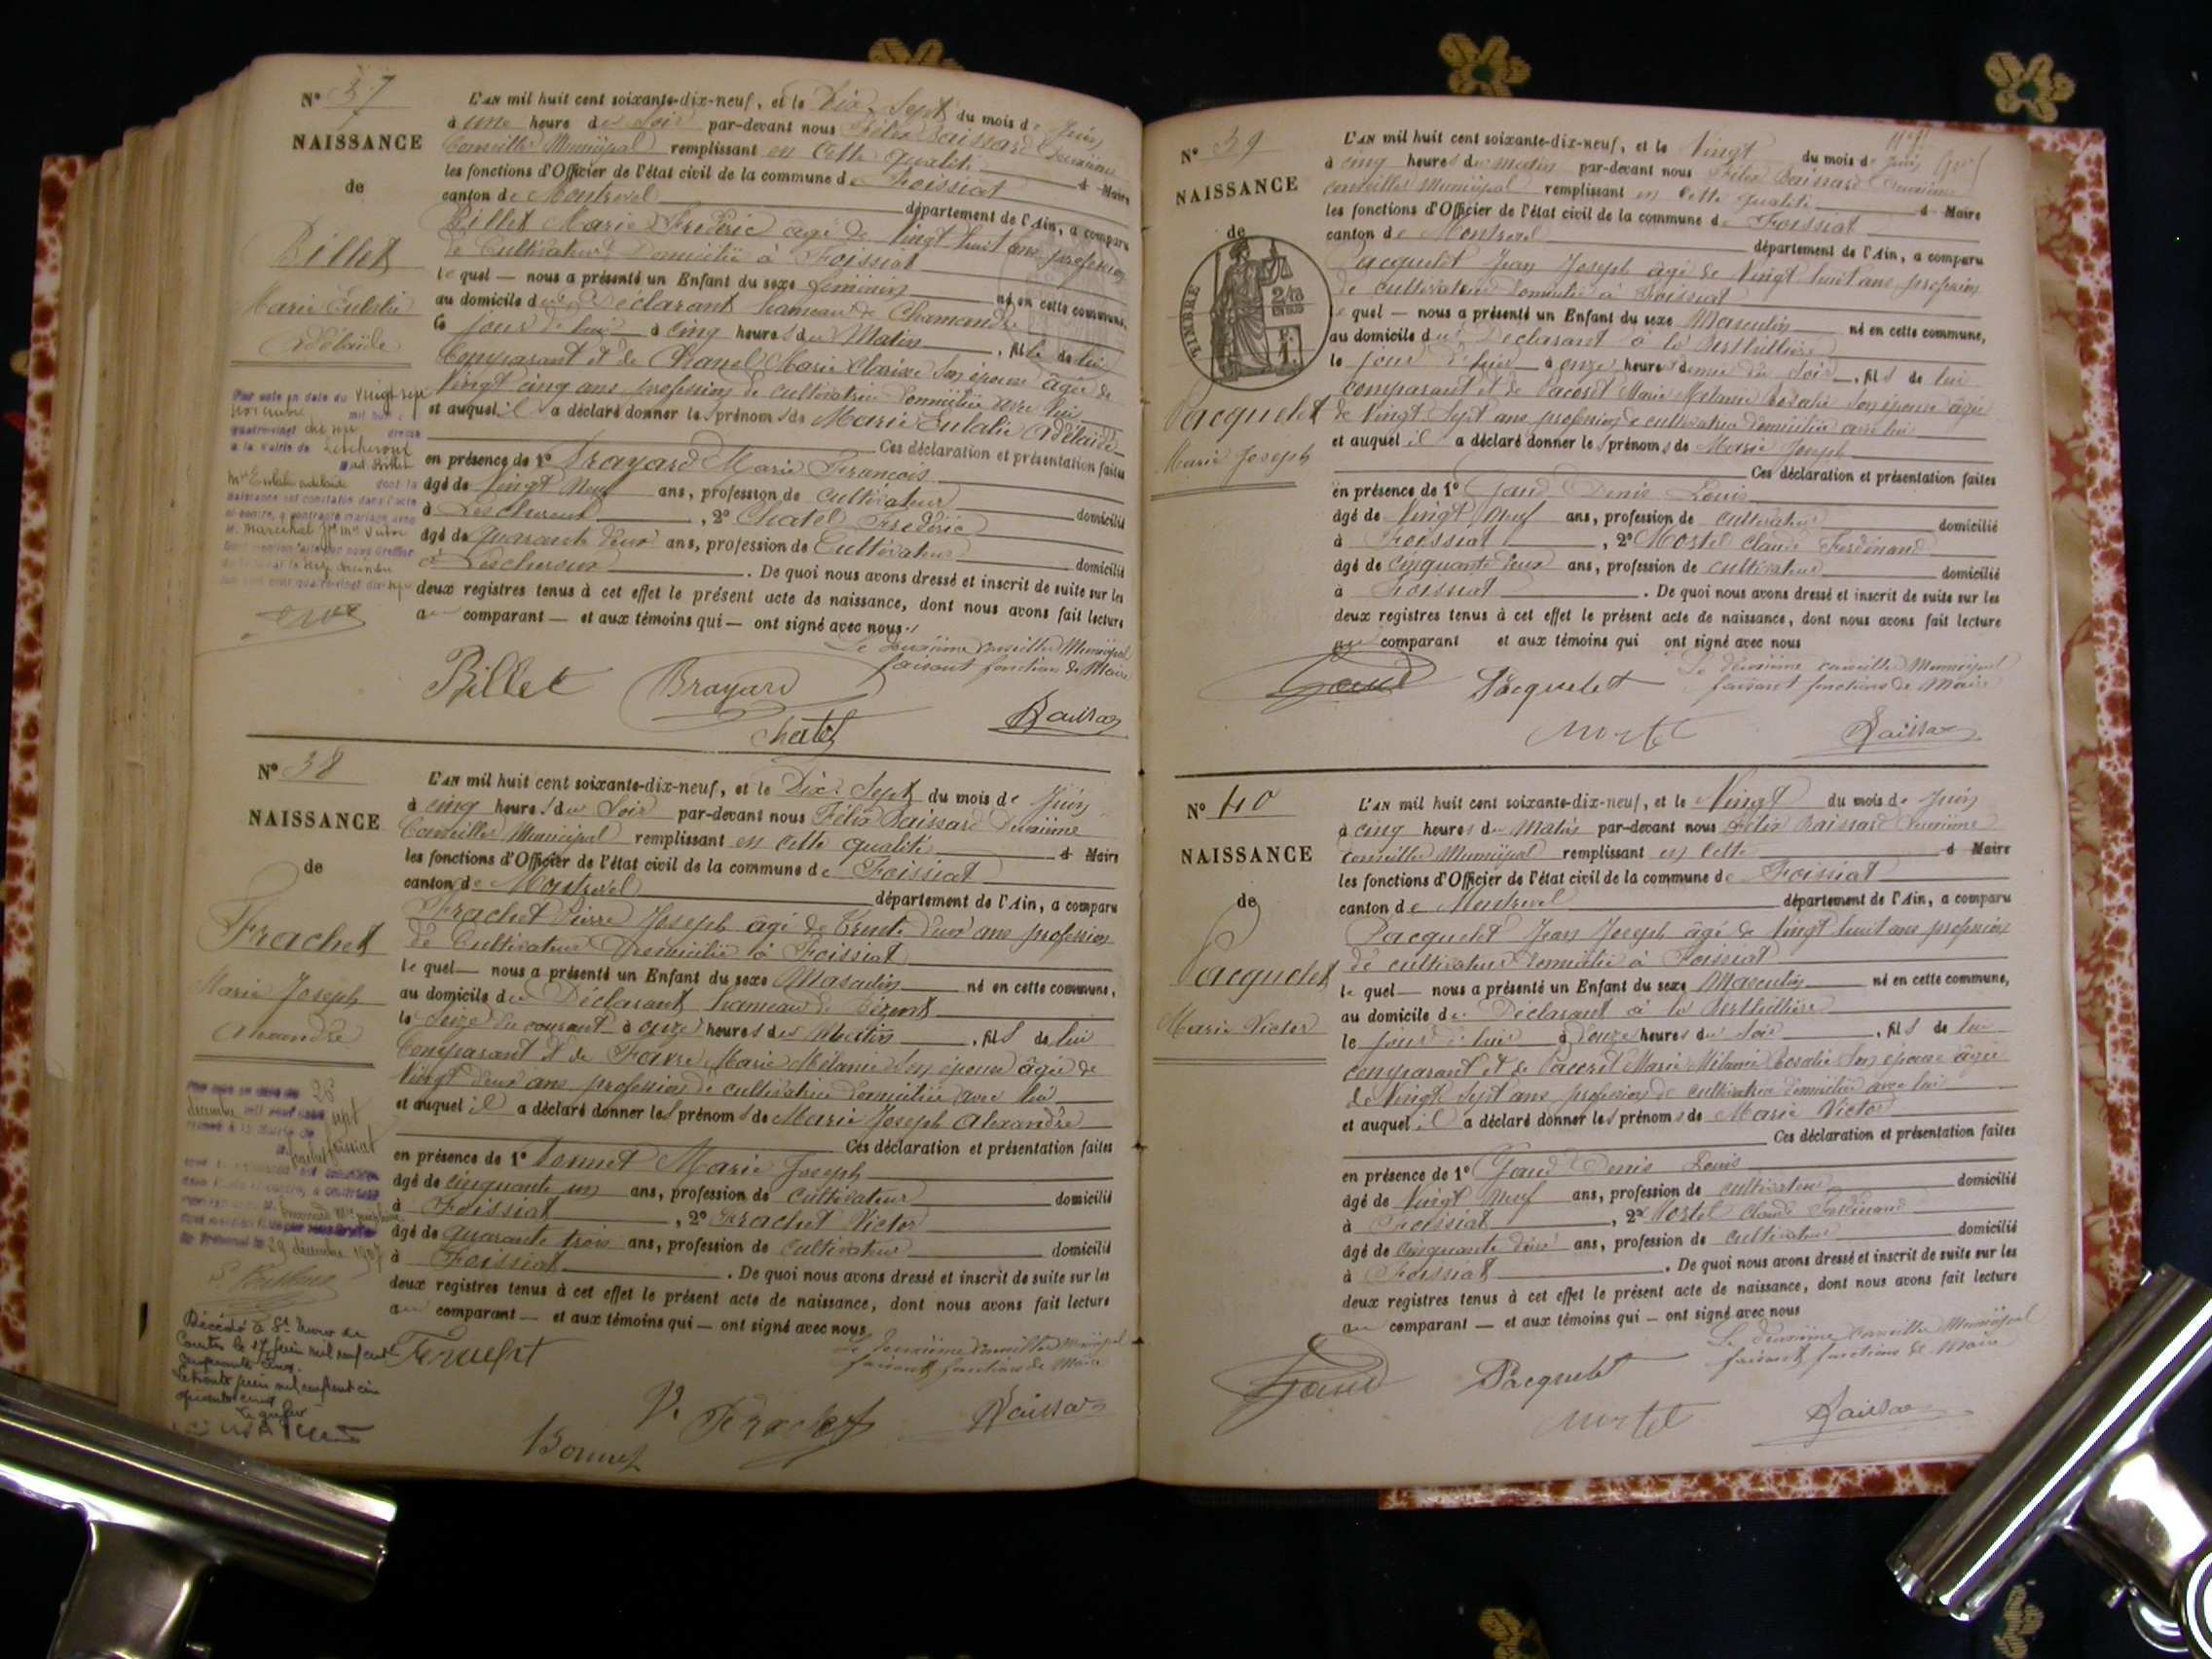 N° 37
NAISSANCE
de
Billet
Marie Eulalie
Adélaïde
L'AN mil huit cent soixante-dix-neuf, et le Dix-Sept du mois de Juin
à une heure du Soir par-devant nous Félix Baissard Deuxième
Conseiller Municipal remplissant en cette qualité d Maire
les fonctions d'Officier de l'état civil de la commune de Foissiat
canton de Montrevel département de l'Ain, a comparu
Billet Marie Frédéric âgé de vingt huit ans profession
de Cultivateur Domicilié à Foissiat
lequel — nous a présenté un Enfant du sexe féminin né en cette commune,
au domicile du Déclarant hameau de Chamandre
le jour de hui à cinq heures du Matin, fille de lui
Comparant et de Chanel Marie Clarisse son épouse âgée de
Vingt cinq ans profession de cultivatrice domiciliée avec lui
et auquel il a déclaré donner les prénoms de Marie Eulalie Adélaïde
Ces déclaration et présentation faites
en présence de 1° Brayard Marie François
âgé de Vingt Neuf ans, profession de Cultivateur domicilié
à Lescheroux, 2° Chatel Frédéric
âgé de quarante deux ans, profession de Cultivateur domicilié
à Lescheroux. De quoi nous avons dressé et inscrit de suite sur les
deux registres tenus à cet effet le présent acte de naissance, dont nous avons fait lecture
au comparant — et aux témoins qui — ont signé avec nous
Le deuxième Conseiller Municipal
faisant fonctions de Maire
Billet Brayard
Chatel Baissard
N° 38
NAISSANCE
de
Frachet
Marie Joseph
Alexandre
L'AN mil huit cent soixante-dix-neuf, et le Dix-Sept du mois de Juin
à cinq heures du Soir par-devant nous Félix Baissard Deuxième
Conseiller Municipal remplissant en cette qualité d Maire
les fonctions d'Officier de l'état civil de la commune de Foissiat
canton de Montrevel département de l'Ain, a comparu
Frachet Pierre Joseph âgé de Trente deux ans profession
de Cultivateur Domicilié à Foissiat
lequel — nous a présenté un Enfant du sexe Masculin né en cette commune,
au domicile du Déclarant hameau de
le Seize du courant à onze heures du Matin, fils de lui
Comparant et de Favre Marie Mélanie son épouse âgée de
Vingt deux ans profession de cultivatrice domiciliée avec lui
et auquel il a déclaré donner les prénoms de Marie Joseph Alexandre
Ces déclaration et présentation faites
en présence de 1° Bonnet Marie Joseph
âgé de cinquante un ans, profession de Cultivateur domicilié
à Foissiat, 2° Frachet Victor
âgé de quarante trois ans, profession de Cultivateur domicilié
à Foissiat. De quoi nous avons dressé et inscrit de suite sur les
deux registres tenus à cet effet le présent acte de naissance, dont nous avons fait lecture
au comparant — et aux témoins qui — ont signé avec nous
Le deuxième Conseiller Municipal
faisant fonctions de Maire
V. Frachet Baissard
Bonnet
29 décembre 1907
N° 39
NAISSANCE
de
TIMBRE
Pacquelet
Marie Joseph
L'AN mil huit cent soixante-dix-neuf, et le Vingt du mois de Juin
à cinq heures du matin par-devant nous Félix Baissard Deuxième
conseiller Municipal remplissant en cette qualité d Maire
les fonctions d'Officier de l'état civil de la commune de Foissiat
canton de Montrevel département de l'Ain, a comparu
Pacquelet Jean Joseph âgé de Vingt huit ans profession
de cultivateur domicilié à Foissiat
lequel — nous a présenté un Enfant du sexe Masculin né en cette commune,
au domicile du Déclarant à la
le jour d'hier à onze heures demie du soir, fils de lui
comparant et de Pacoret Marie Mélanie Rosalie son épouse âgée
de Vingt Sept ans profession de cultivatrice domiciliée avec lui
et auquel il a déclaré donner les prénoms de Marie Joseph
Ces déclaration et présentation faites
en présence de 1° Gaud Denis Louis
âgé de Vingt Neuf ans, profession de cultivateur domicilié
à Foissiat, 2° Mortel Claude Ferdinand
âgé de cinquante deux ans, profession de cultivateur domicilié
à Foissiat. De quoi nous avons dressé et inscrit de suite sur les
deux registres tenus à cet effet le présent acte de naissance, dont nous avons fait lecture
au comparant et aux témoins qui ont signé avec nous
Le deuxième conseiller Municipal
faisant fonctions de Maire
Gaud Pacquelet
Mortel Baissard
N° 40
NAISSANCE
de
Pacquelet
Marie Victor
L'AN mil huit cent soixante-dix-neuf, et le Vingt du mois de Juin
à cinq heures du Matin par-devant nous Félix Baissard Deuxième
conseiller Municipal remplissant en cette d Maire
les fonctions d'Officier de l'état civil de la commune de Foissiat
canton de Montrevel département de l'Ain, a comparu
Pacquelet Jean Joseph âgé de Vingt huit ans profession
de cultivateur domicilié à Foissiat
lequel — nous a présenté un Enfant du sexe Masculin né en cette commune,
au domicile du Déclarant à la
le jour d'hier à Douze heures du soir, fils de lui
comparant et de Pacoret Marie Mélanie Rosalie son épouse âgée
de Vingt Sept ans profession de cultivatrice domiciliée avec lui
et auquel il a déclaré donner les prénoms de Marie Victor
Ces déclaration et présentation faites
en présence de 1° Gaud Denis Louis
âgé de Vingt Neuf ans, profession de cultivateur domicilié
à Foissiat, 2° Mortel Claude Ferdinand
âgé de cinquante deux ans, profession de cultivateur domicilié
à Foissiat. De quoi nous avons dressé et inscrit de suite sur les
deux registres tenus à cet effet le présent acte de naissance, dont nous avons fait lecture
au comparant — et aux témoins qui — ont signé avec nous
Le deuxième Conseiller Municipal
faisant fonctions de Maire
Gaud Pacquelet
Mortel Baissard